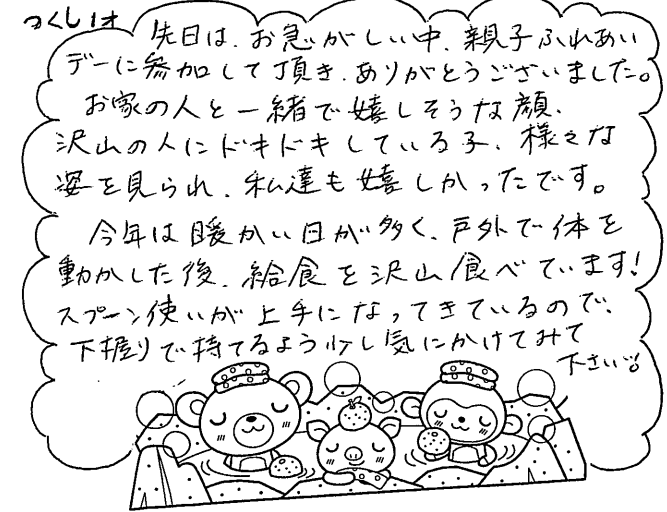 つくし1才
先日は、お急がしい中、親子ふれあい
デーに参加して頂き、ありがとうございました。
お家の人と一緒で嬉しそうな顔、
沢山の人にドキドキしている子、様々な
姿を見られ、私達も嬉しかったです。
今年は暖かい日が多く、戸外で体を
動かした後、給食を沢山食べています!
スプーン使いが上手になってきているので、
下握りで持てるよう少し気にかけてみて
下さい